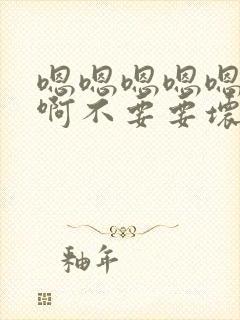 嗯嗯嗯嗯嗯
啊不要要坏
釉年